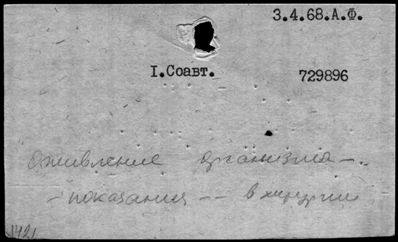 3.4.68.А.Ф.
I.Соавт.
729896
Оживление организма –.
– показания – – в хирургии
1421